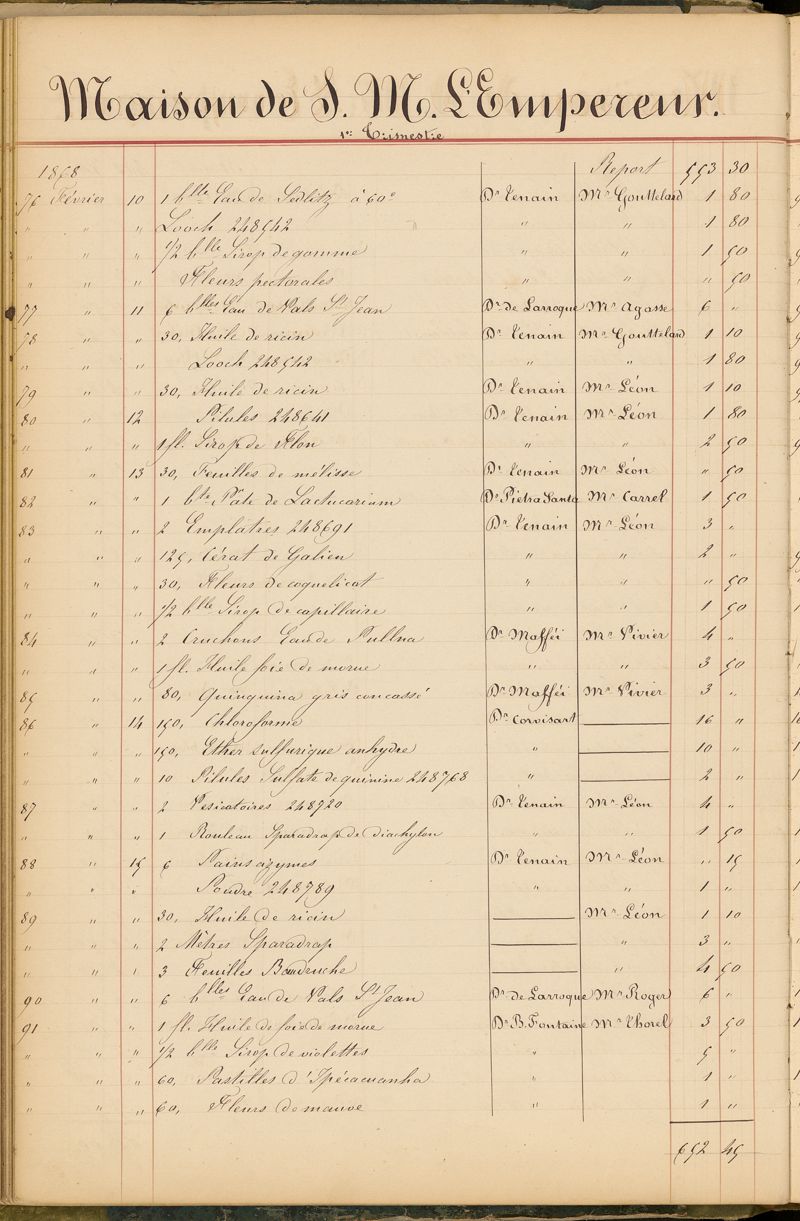 Maison de S. M. L'Empereur.
1er Trimestre
1868 Report 553 30
76 Février 10 1 blle Eau de Sedlitz à 60° Dr Tenain Mr Gouttelard 1 80
" " " Looch 248542 " " 1 80
" " " 1/2 blle Sirop de gomme " " 1 50
" " " Fleurs pectorales " " " 50
77 " 11 6 blles Eau de Vals St Jean Dr de Larroque Mr Agasse 6 "
78 " " 30, Huile de ricin Dr Tenain Mr Gouttelard 1 10
" " " Looch 248542 " " 1 80
79 " " 30, Huile de ricin Dr Tenain Mr Léon 1 10
80 " 12 Pilules 248641 Dr Tenain Mr Léon 1 80
" " " 1 fl. Sirop de Flon " " 2 50
81 " 13 30, Feuilles de mélisse Dr Tenain Mr Léon " 50
82 " " 1 bte Pâte de Lactucarium Dr Pietra Santa Mr Carrel 1 50
83 " " 2 Emplatres 248691 Dr Tenain Mr Léon 3 "
" " " 125, Cérat de Galien " " 2 "
" " " 30, Fleurs de coquelicot " " " 50
" " " 1/2 blle Sirop de capillaire " " 1 50
84 " " 2 Cruchons Eau de Pullna Dr Mafféi Mr Vivier 4 "
" " " 1 fl. Huile foie de morue " " 3 50
85 " " 80, Quinquina gris concassé Dr Mafféi Mr Vivier 3 "
86 " 14 150, Chloroforme Dr Corvisart 16 "
" " " 150, Ether sulfurique anhydre " 10 "
" " " 10 Pilules Sulfate de quinine 248768 " 2 "
87 " " 2 Vesicatoires 248720 Dr Tenain Mr Léon 4 "
" " " 1 Rouleau Sparadrap de diachylon " " 1 50
88 " 15 6 Pains azymes Dr Tenain Mr Léon " 15
" " " Poudre 248789 " " 1 "
89 " " 30, Huile de ricin Mr Léon 1 10
" " " 2 Mètres Sparadrap " 3 "
" " " 3 Feuilles Baudruche " 4 50
90 " " 6 blles Eau de Vals St Jean Dr de Larroque Mr Roger 6 "
91 " " 1 fl. Huile de foie de morue Dr B. Fontaine Mr Thorel 3 50
" " " 1/2 blle Sirop de violettes " 5 "
" " " 60, Pastilles d'Ipécacuanha " 1 "
" " " 60, Fleurs de mauve " 1 "
652 45